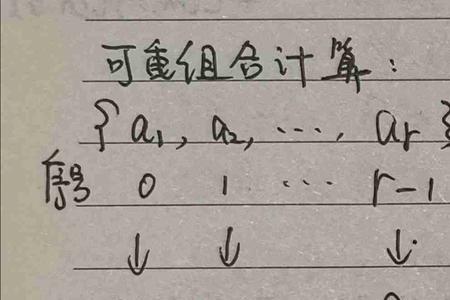 可重组合计算：
{ a₁, a₂, ⋯, aᵣ }
序号 0 1 ⋯ r-1
↓ ↓ ↓